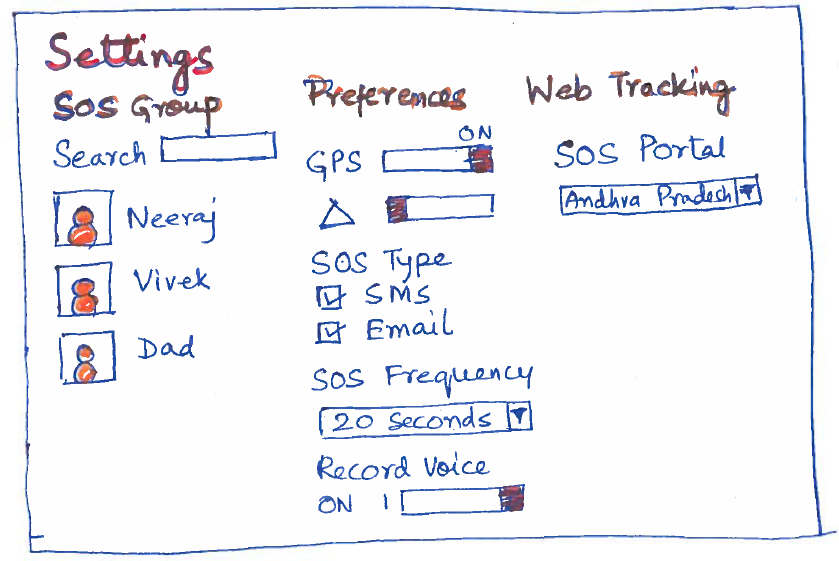 Settings
SOS Group
Search
Neeraj
Vivek
Dad
Preferences
ON
GPS
SOS Type
SMS
Email
SOS Frequency
20 Seconds
Record Voice
ON
Web Tracking
SOS Portal
Andhra Pradesh